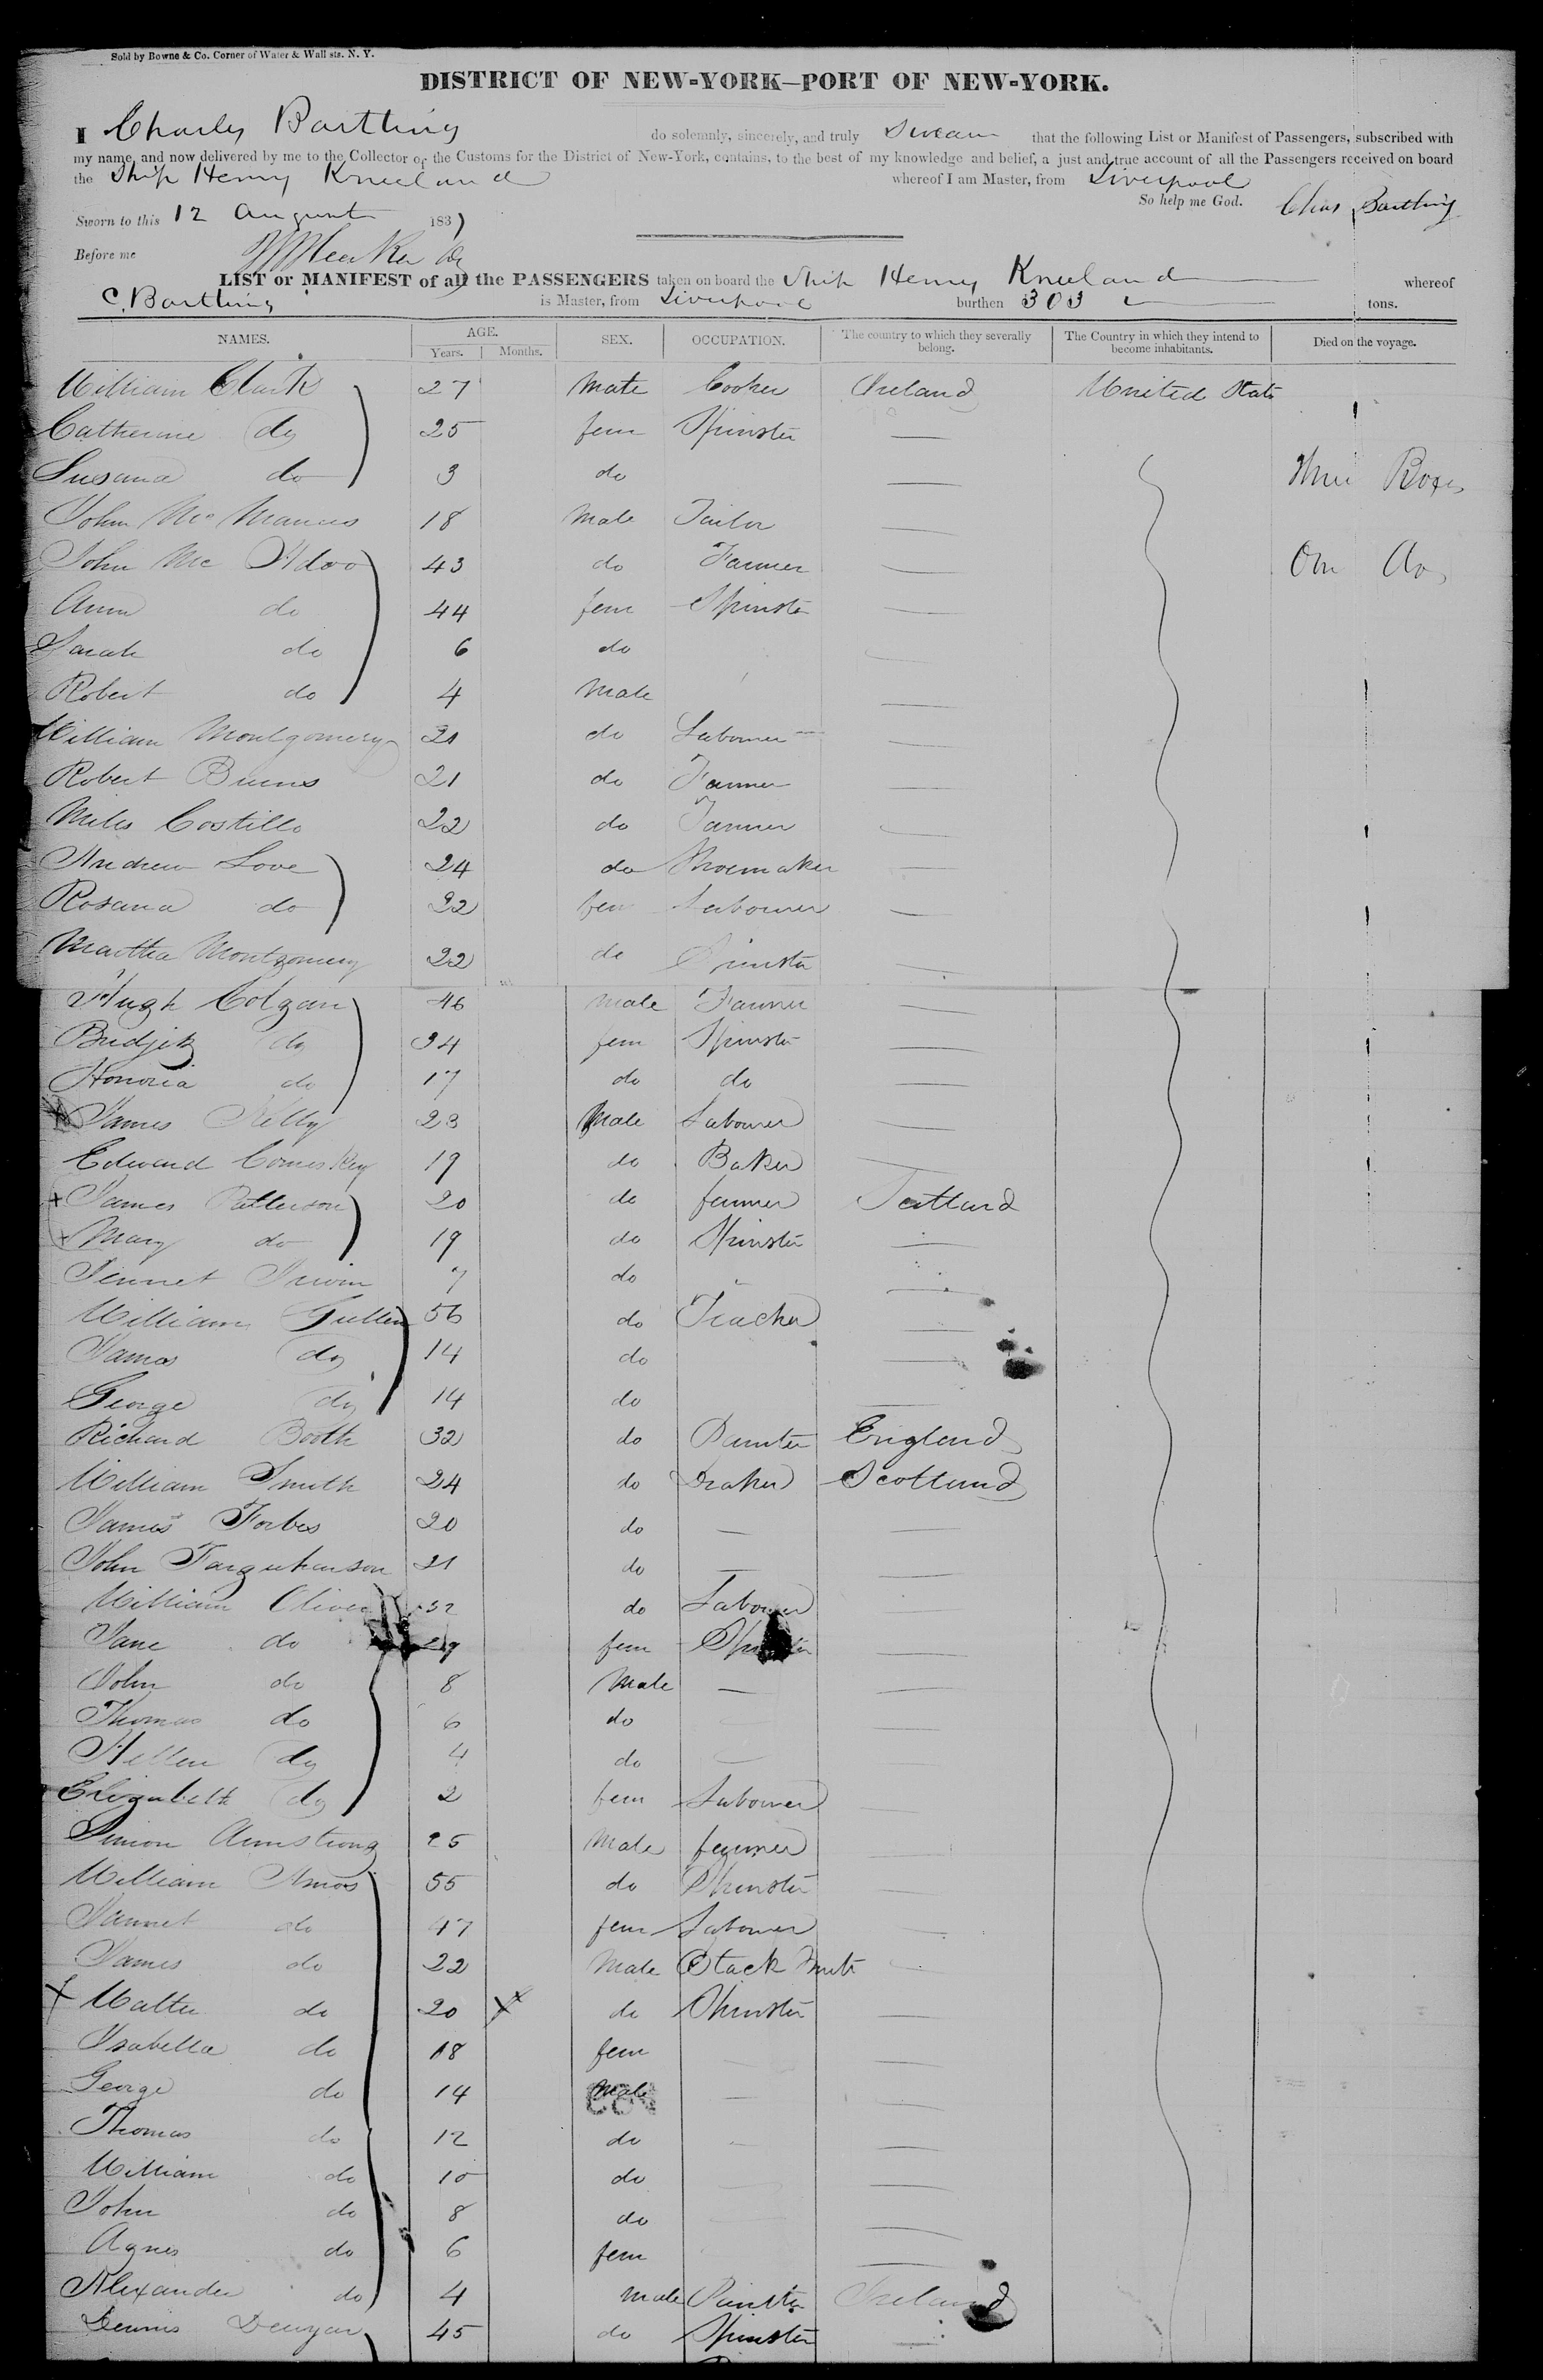 Sold by Bowne & Co. Corner of Water & Wall sts. N. Y.
DISTRICT OF NEW-YORK—PORT OF NEW-YORK.
I Charles Bartling do solemnly, sincerely, and truly Swear that the following List or Manifest of Passengers, subscribed with
my name, and now delivered by me to the Collector of the Customs for the District of New-York, contains, to the best of my knowledge and belief, a just and true account of all the Passengers received on board
the Ship Henry Kneeland whereof I am Master, from Liverpool
So help me God. Chas Bartling
Sworn to this 12 August 183
Before me
LIST or MANIFEST of all the PASSENGERS taken on board the Ship Henry Kneeland whereof
C. Bartling is Master, from Liverpool burthen 303 tons.
NAMES. AGE. SEX. OCCUPATION. The country to which they severally belong. The Country in which they intend to become inhabitants. Died on the voyage.
Years. Months.
William Clark 27 Male Cooker Ireland United States
Catherine do 25 fem Spinster
Susana do 3 do Boxes
John McManus 18 Male Tailor
John Mc Adoo 43 do Farmer One do
Ann do 44 fem Spinster
Sarah do 6 do
Robert do 4 Male
William Montgomery 21 do Labourer
Robert Burns 21 do Farmer
Miles Costillo 22 do Farmer
Andrew Love 24 do Shoemaker
Rosana do 22 fem Labourer
Martha Montgomery 22 do Spinster
Hugh Colgan 46 Male Farmer
Bridjet do 34 fem Spinster
Honoria do 17 do do
James Kelly 23 Male Labourer
Edward Comeskey 19 do Baker
+ James Patterson 20 do farmer Scotland
+ Mary do 19 do Spinster
Jennet Irwin 7 do
William Gullen 56 do Teacher
James do 14 do
George do 14 do
Richard Booth 32 do Painter England
William Smith 24 do Draper Scotland
James Forbes 20 do —
John Farquharson 21 do —
William Oliver 32 do Labourer
Jane do 29 fem Spinster
John do 8 Male —
Thomas do 6 do
Hellen do 4 do
Elizabeth do 2 fem Labourer
Simon Armstrong 25 Male farmer
William Amos 55 do Spinster
Jannet do 47 fem Labourer
James do 22 Male Black Smith
X Walter do 20 X do Spinster
Isabella do 18 fem
George do 14 Male
Thomas do 12 do
William do 10 do
John do 8 do
Agnes do 6 fem
Alexander do 4 Male Painter Ireland
Dennis 45 do Spinster